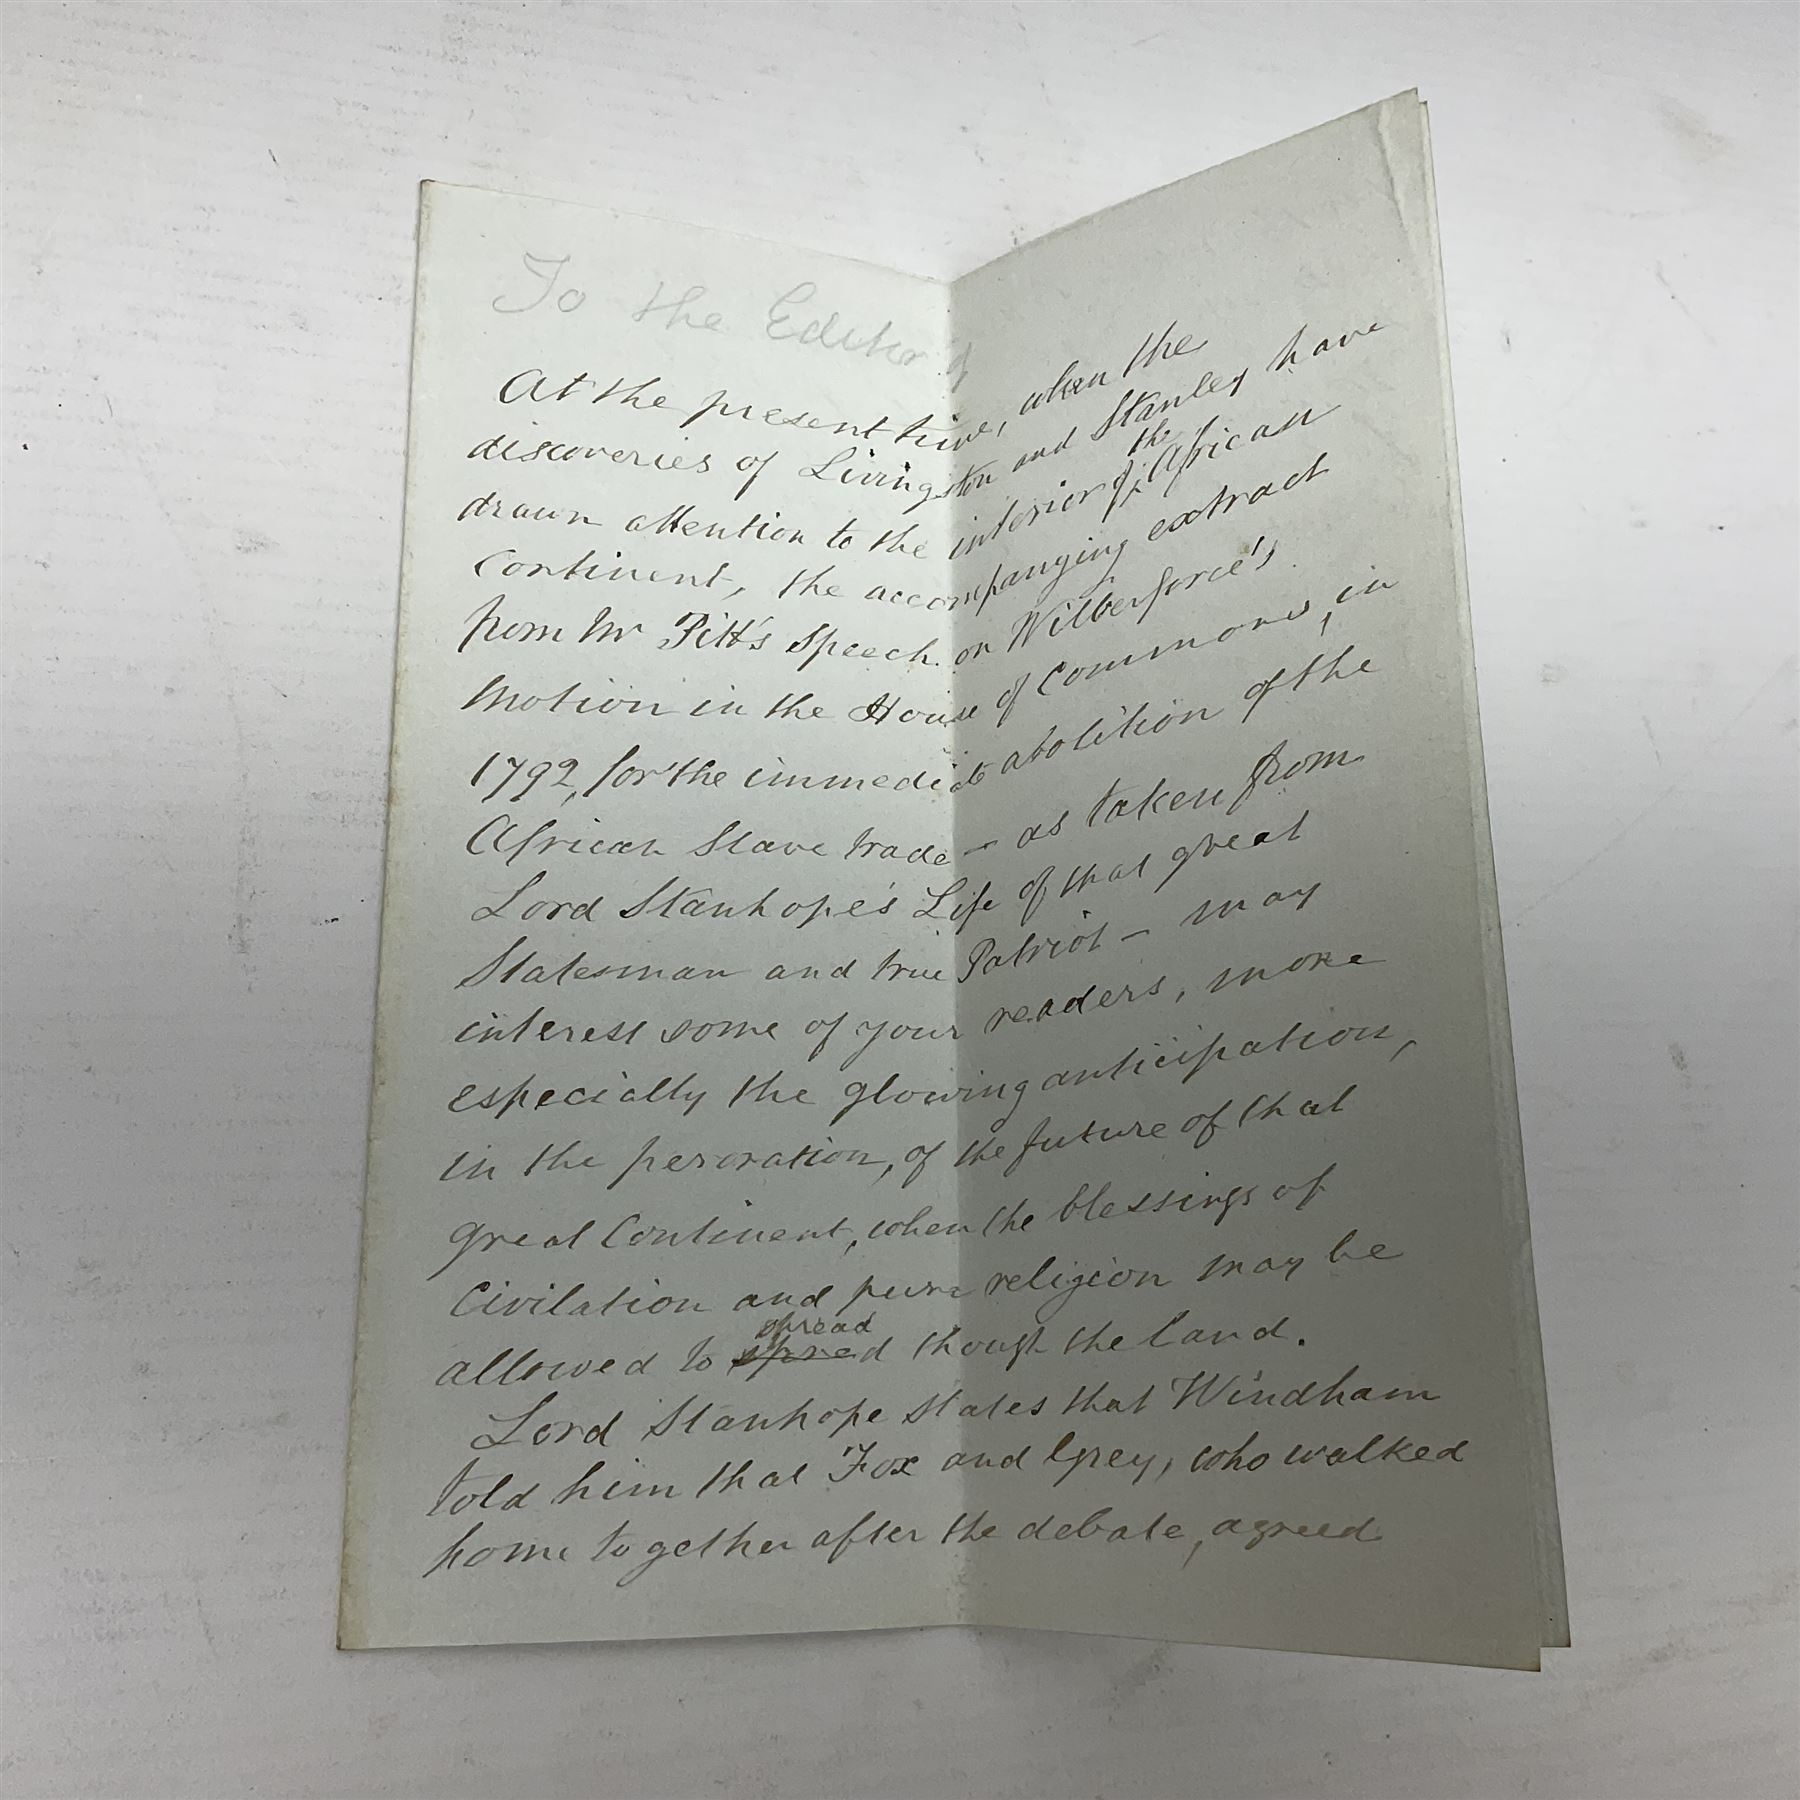 To the Editor of
At the present time, when the
discoveries of Livingston and Stanley have
drawn attention to the interior of the African
Continent, the accompanying extract
from Mr Pitt's Speech on Wilberforce's
Motion in the House of Commons, in
1792, for the immediate abolition of the
African Slave trade — as taken from
Lord Stanhope's Life of that great
Statesman and true Patriot — may
interest some of your readers, more
especially the glowing anticipation,
in the peroration, of the future of that
great Continent, when the blessings of
Civilation and pure religion may be
allowed to spred spread though the land.
Lord Stanhope states that Windham
told him that Fox and Grey, who walked
home together after the debate, agreed